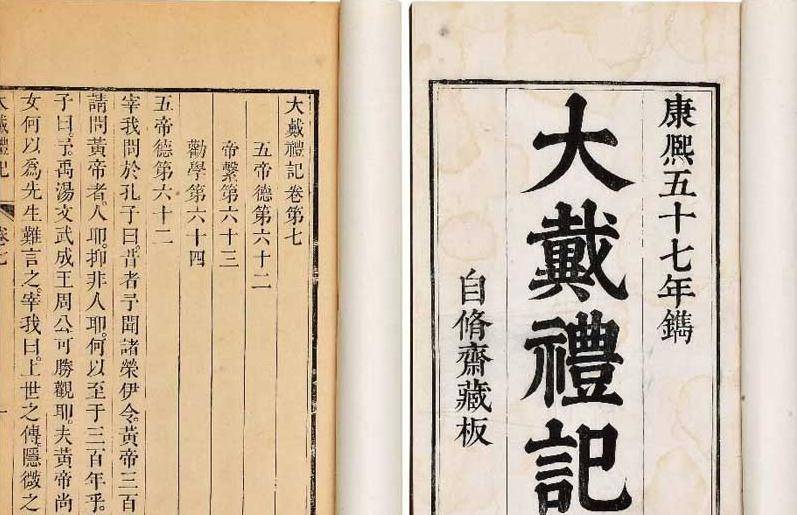 康熙五十七年鐫
大戴禮記
自脩齋藏板
大戴禮記卷第七
五帝德第六十二
帝繫第六十三
勸學第六十四
五帝德第六十二
宰我問於孔子曰。昔者予聞諸榮伊令。黃帝三百
請問黃帝者。人耶。抑非人耶。何以至于三百年乎。
子曰。予禹湯文武成王周公可勝觀耶。夫黃帝尚
女何以爲先生難言之。宰我曰。上世之傳。隱微之
大戴禮記 卷七 一